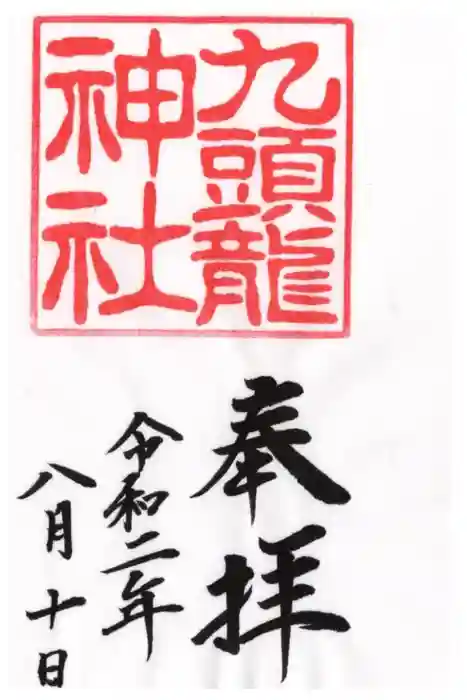 九頭龍
神社
奉拝
令和二年
八月十日